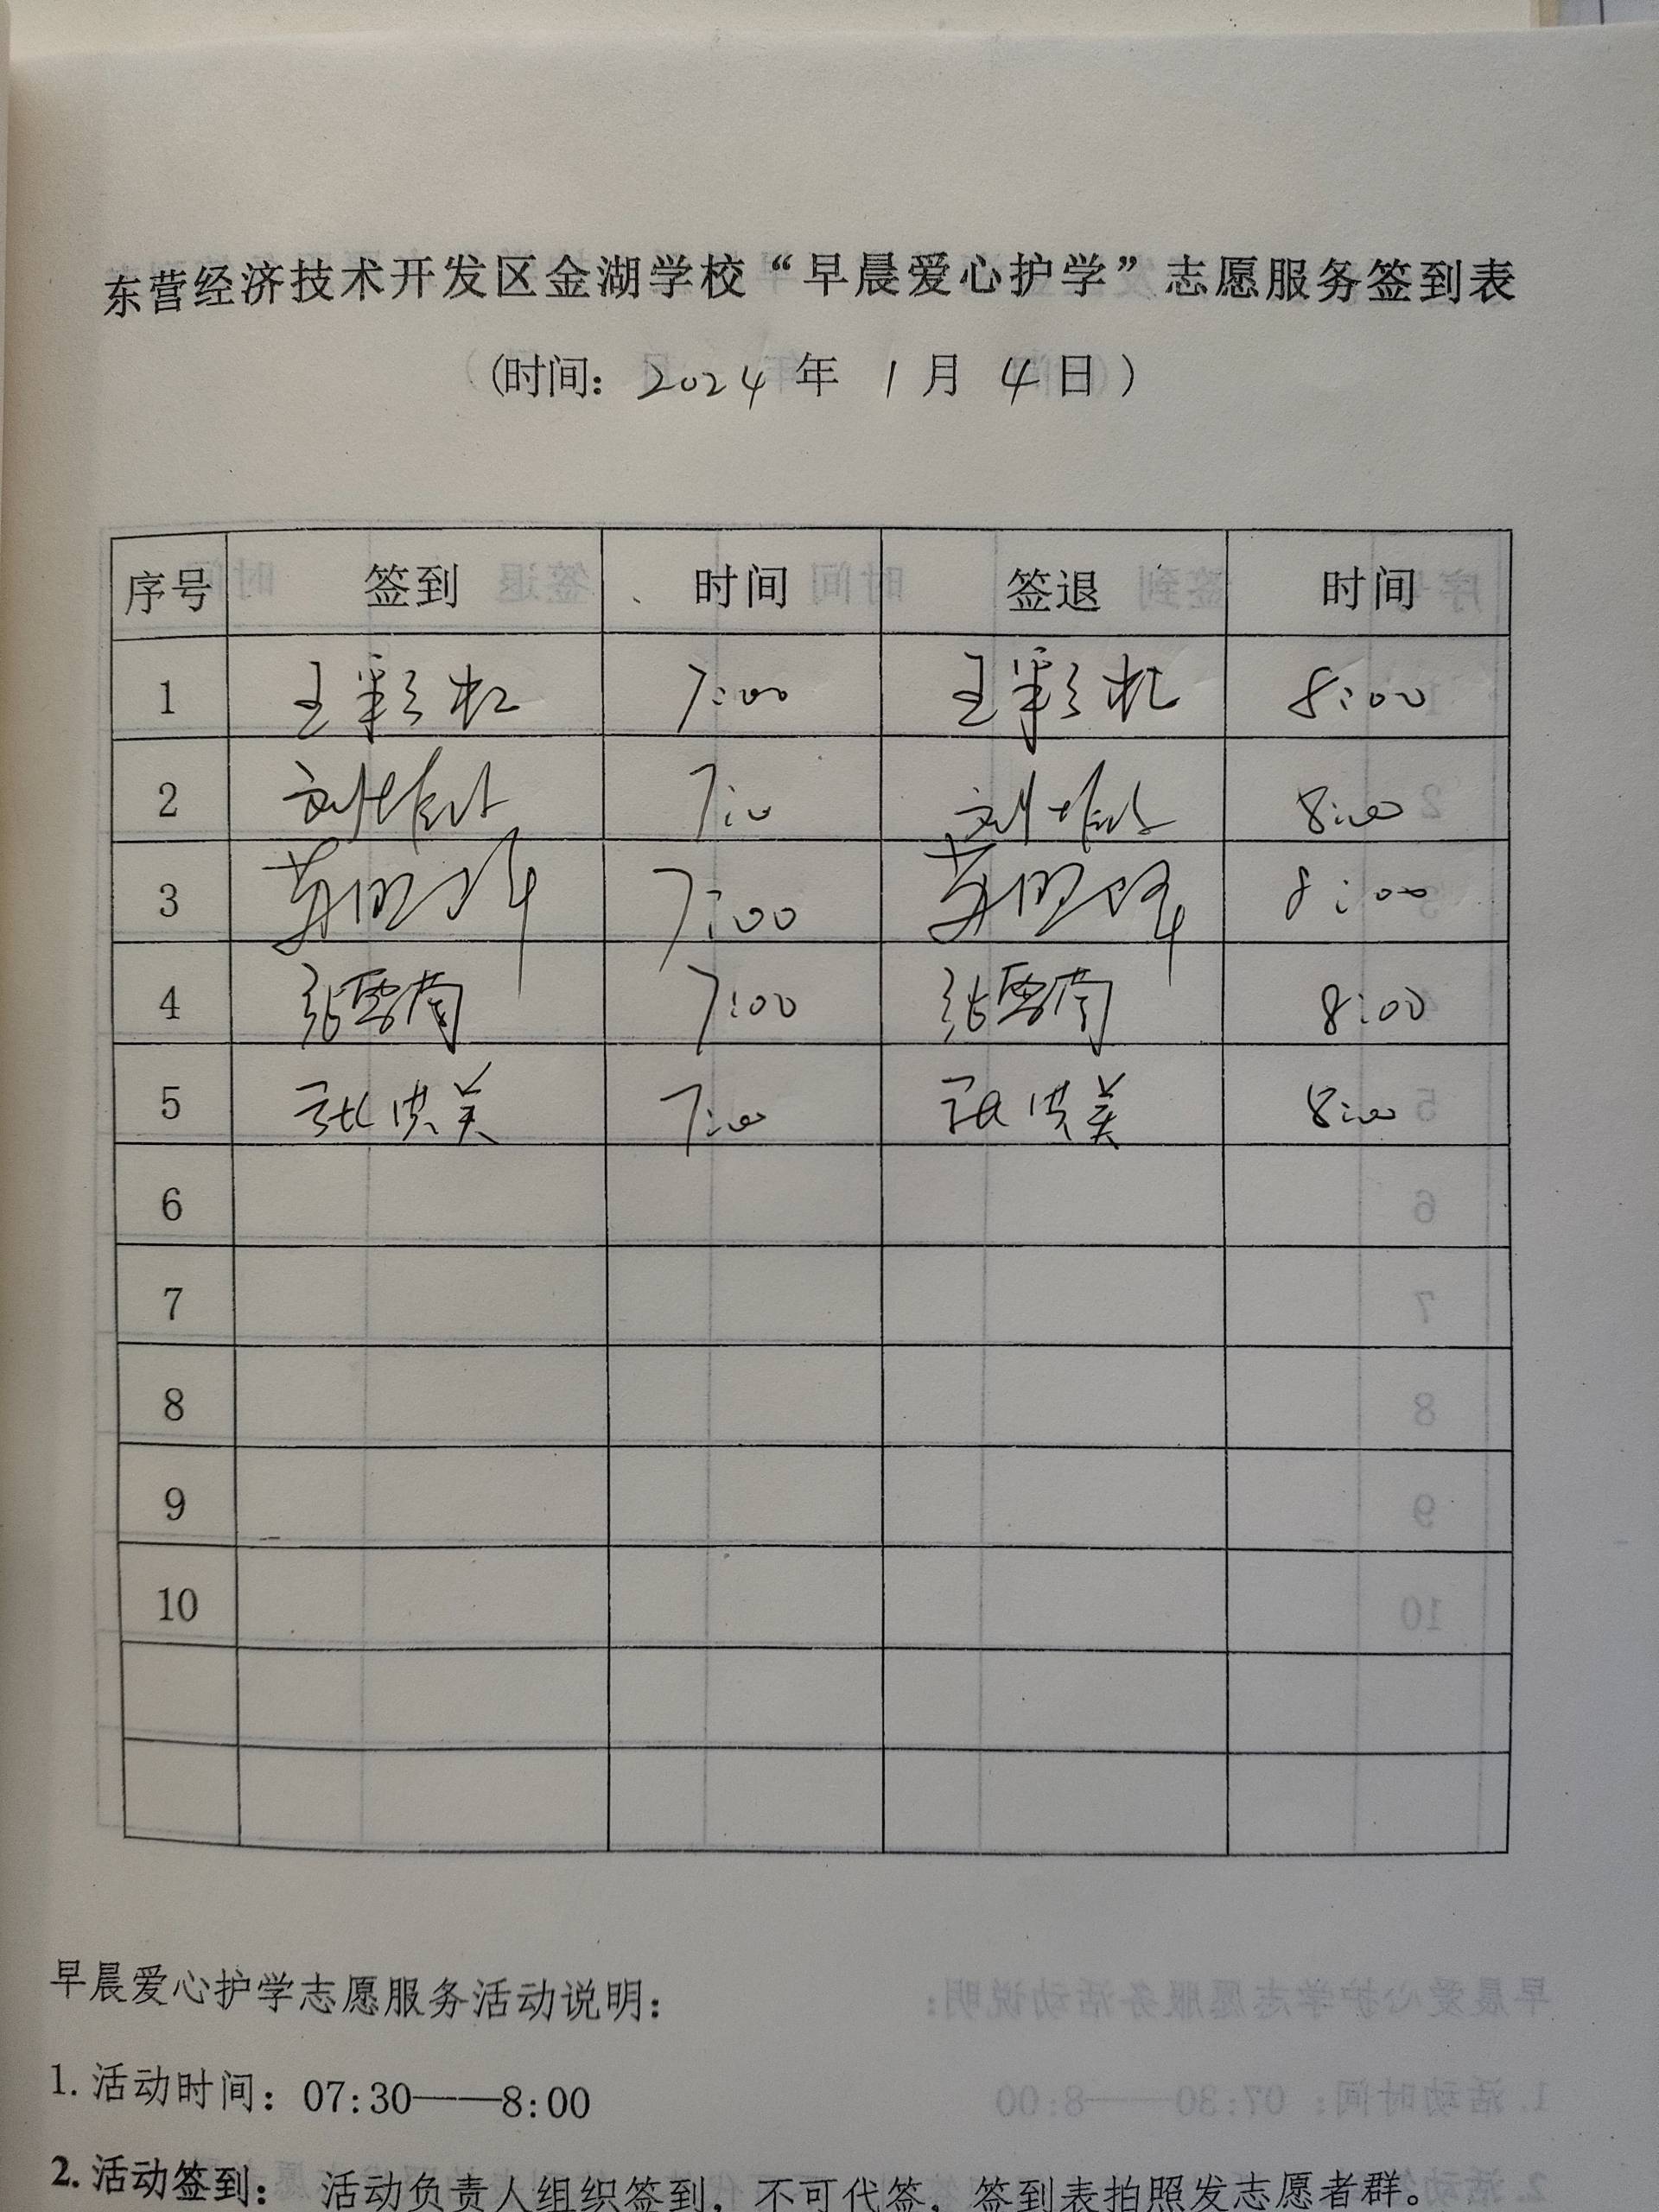 东营经济技术开发区金湖学校“早晨爱心护学”志愿服务签到表
(时间: 2024 年 1 月 4 日)
序号 签到 时间 签退 时间
1 王彩虹 7:00 王彩虹 8:00
2 刘 7:00 刘 8:00
3 7:00 8:00
4 张雪 7:00 张雪 8:00
5 张洪美 7:00 张洪美 8:00
6
7
8
9
10
早晨爱心护学志愿服务活动说明:
1. 活动时间: 07:30——8:00
2. 活动签到: 活动负责人组织签到, 不可代签, 签到表拍照发志愿者群。